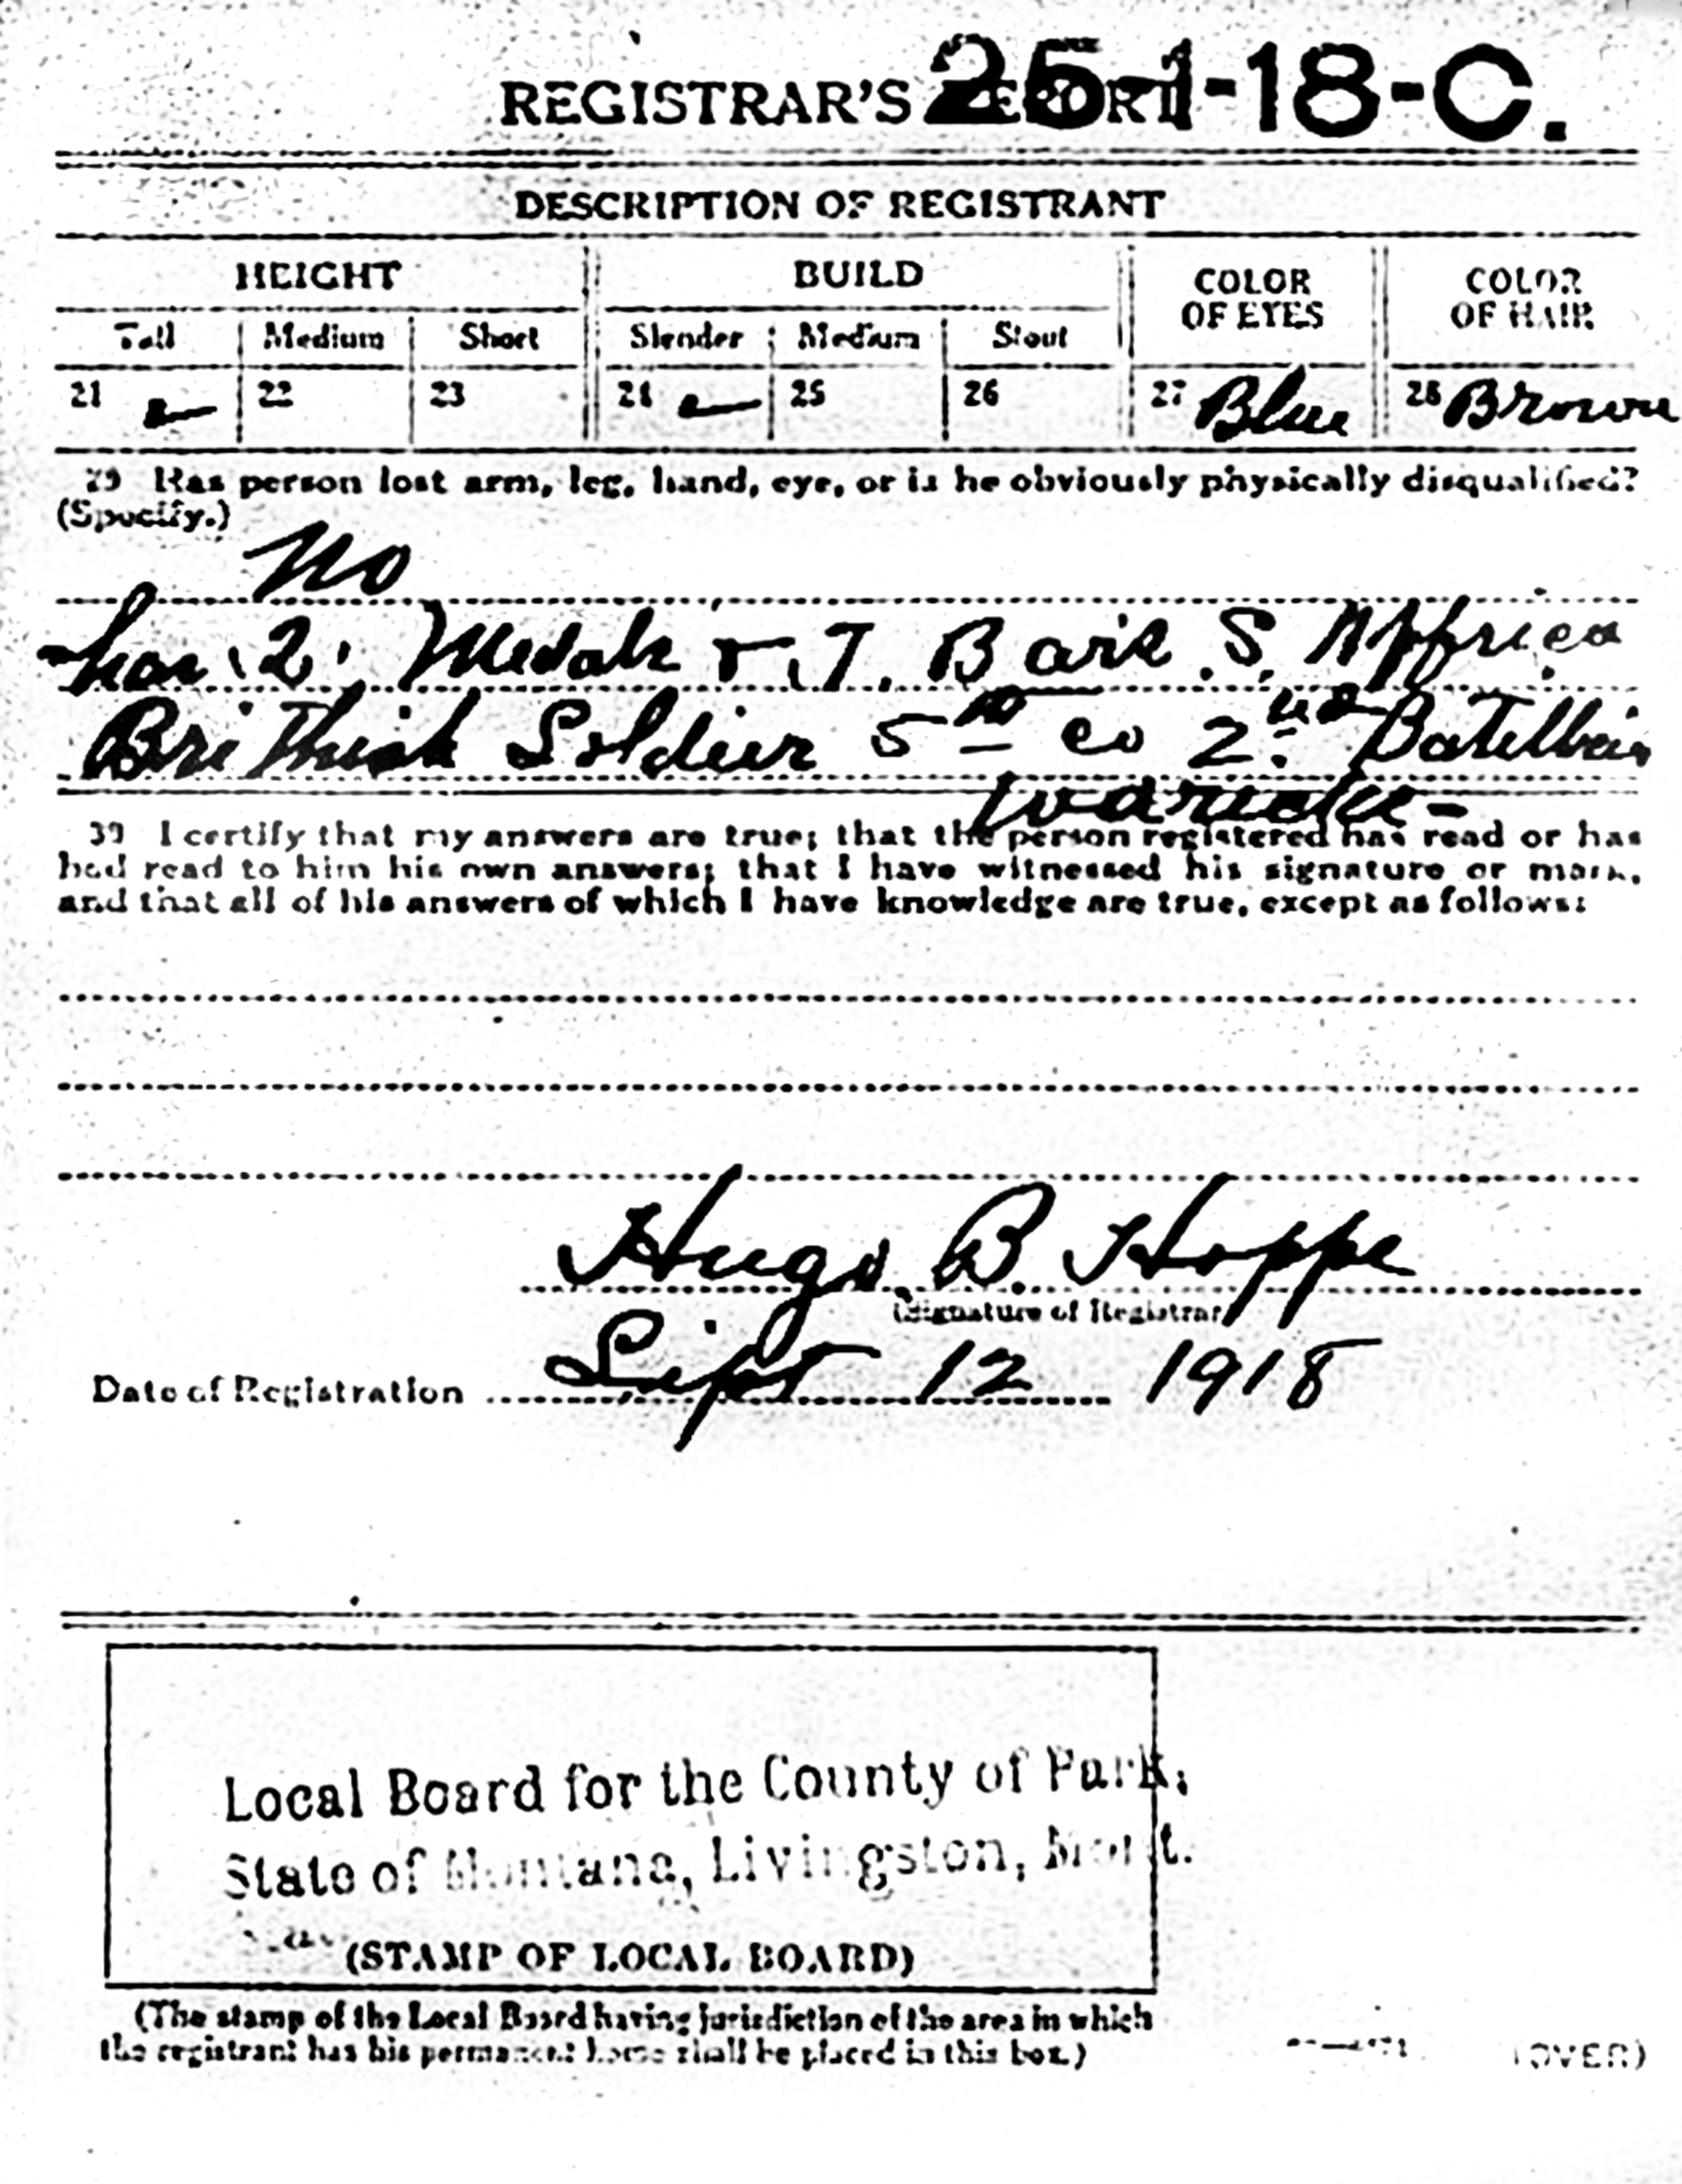 REGISTRAR'S REPORT 25-1-18-C.
DESCRIPTION OF REGISTRANT
HEIGHT BUILD COLOR OF EYES COLOR OF HAIR
Tall Medium Short Slender Medium Stout
21 22 23 24 25 26 27 Blue 28 Brown
29 Has person lost arm, leg, hand, eye, or is he obviously physically disqualified?
(Specify.)
No
has 2 Medals + 7. Bars S. Affrica
Brithish Soldier 5th co 2nd
30 I certify that my answers are true; that the person registered has read or has
had read to him his own answers; that I have witnessed his signature or mark,
and that all of his answers of which I have knowledge are true, except as follows:
Hugo B. Hoppe
(Signature of Registrar)
Date of Registration Sept 12 1918
Local Board for the County of Park,
State of Montana, Livingston, Mont.
(STAMP OF LOCAL BOARD)
(The stamp of the Local Board having jurisdiction of the area in which
the registrant has his permanent home shall be placed in this box.)
(OVER)